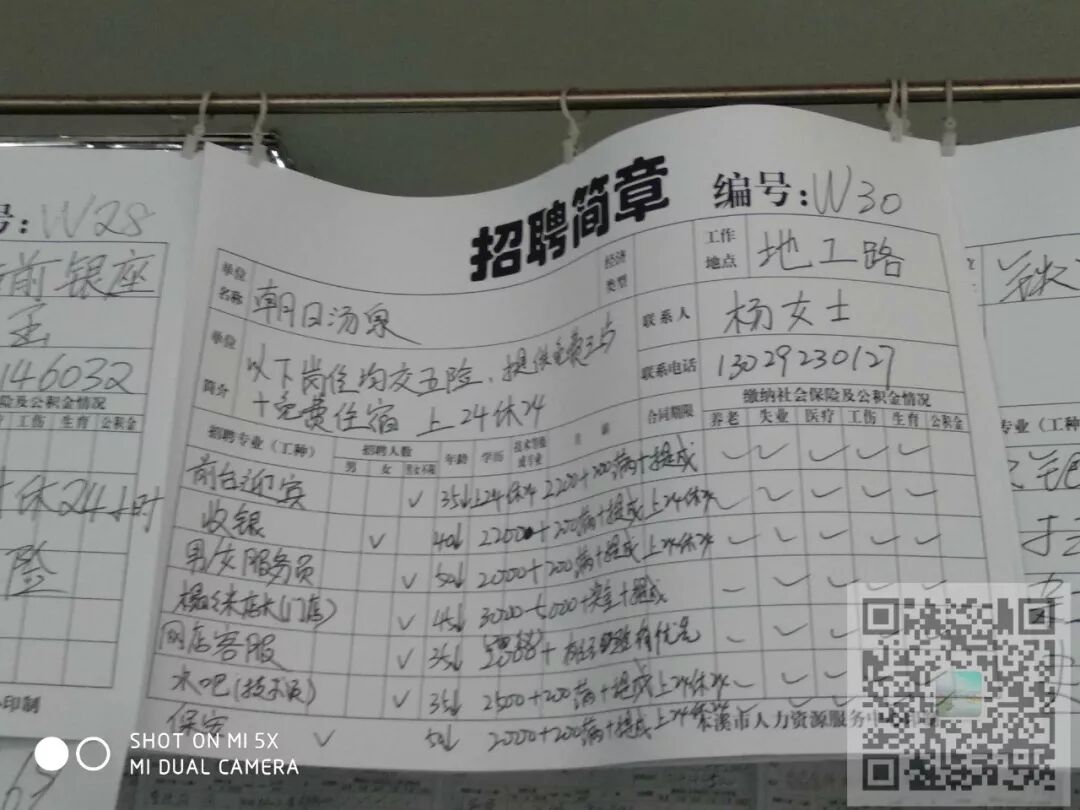 招聘简章
编号:W30
单位名称 朝日汤泉
经济类型
工作地点 地工路
联系人 杨女士
联系电话 13029230127
单位简介 以下岗位均交五险、提供免费三与
+免费住宿 上24休24
缴纳社会保险及公积金情况
招聘专业(工种) 招聘人数 年龄 学历 技术等级或专业 月薪 合同期限 养老 失业 医疗 工伤 生育 公积金
男 女 男女不限
前台迎宾 ✓ 35↓ 上24休24 2200+200满+提成 ✓ ✓ ✓ ✓ ✓
收银 ✓ 40↓ 2200+200满+提成上24休24 ✓ ✓ ✓ ✓ ✓
男/女服务员 ✓ 50↓ 2000+200满+提成上24休24 ✓ ✓ ✓ ✓ ✓
店长(门店) ✓ 45↓ 3000-5000+奖金+提成
网店客服 ✓ 35↓
水吧(技术员) ✓ 35↓ 2500+200满+提成上24休24
保安 ✓ 50↓ 2000+200满+提成上24休24
本溪市人力资源服务中心印制
号:W28
前银座
146032
险及公积金情况
工伤 生育 公积金
休24小时
险
印制
专业(工种)
SHOT ON MI 5X
MI DUAL CAMERA